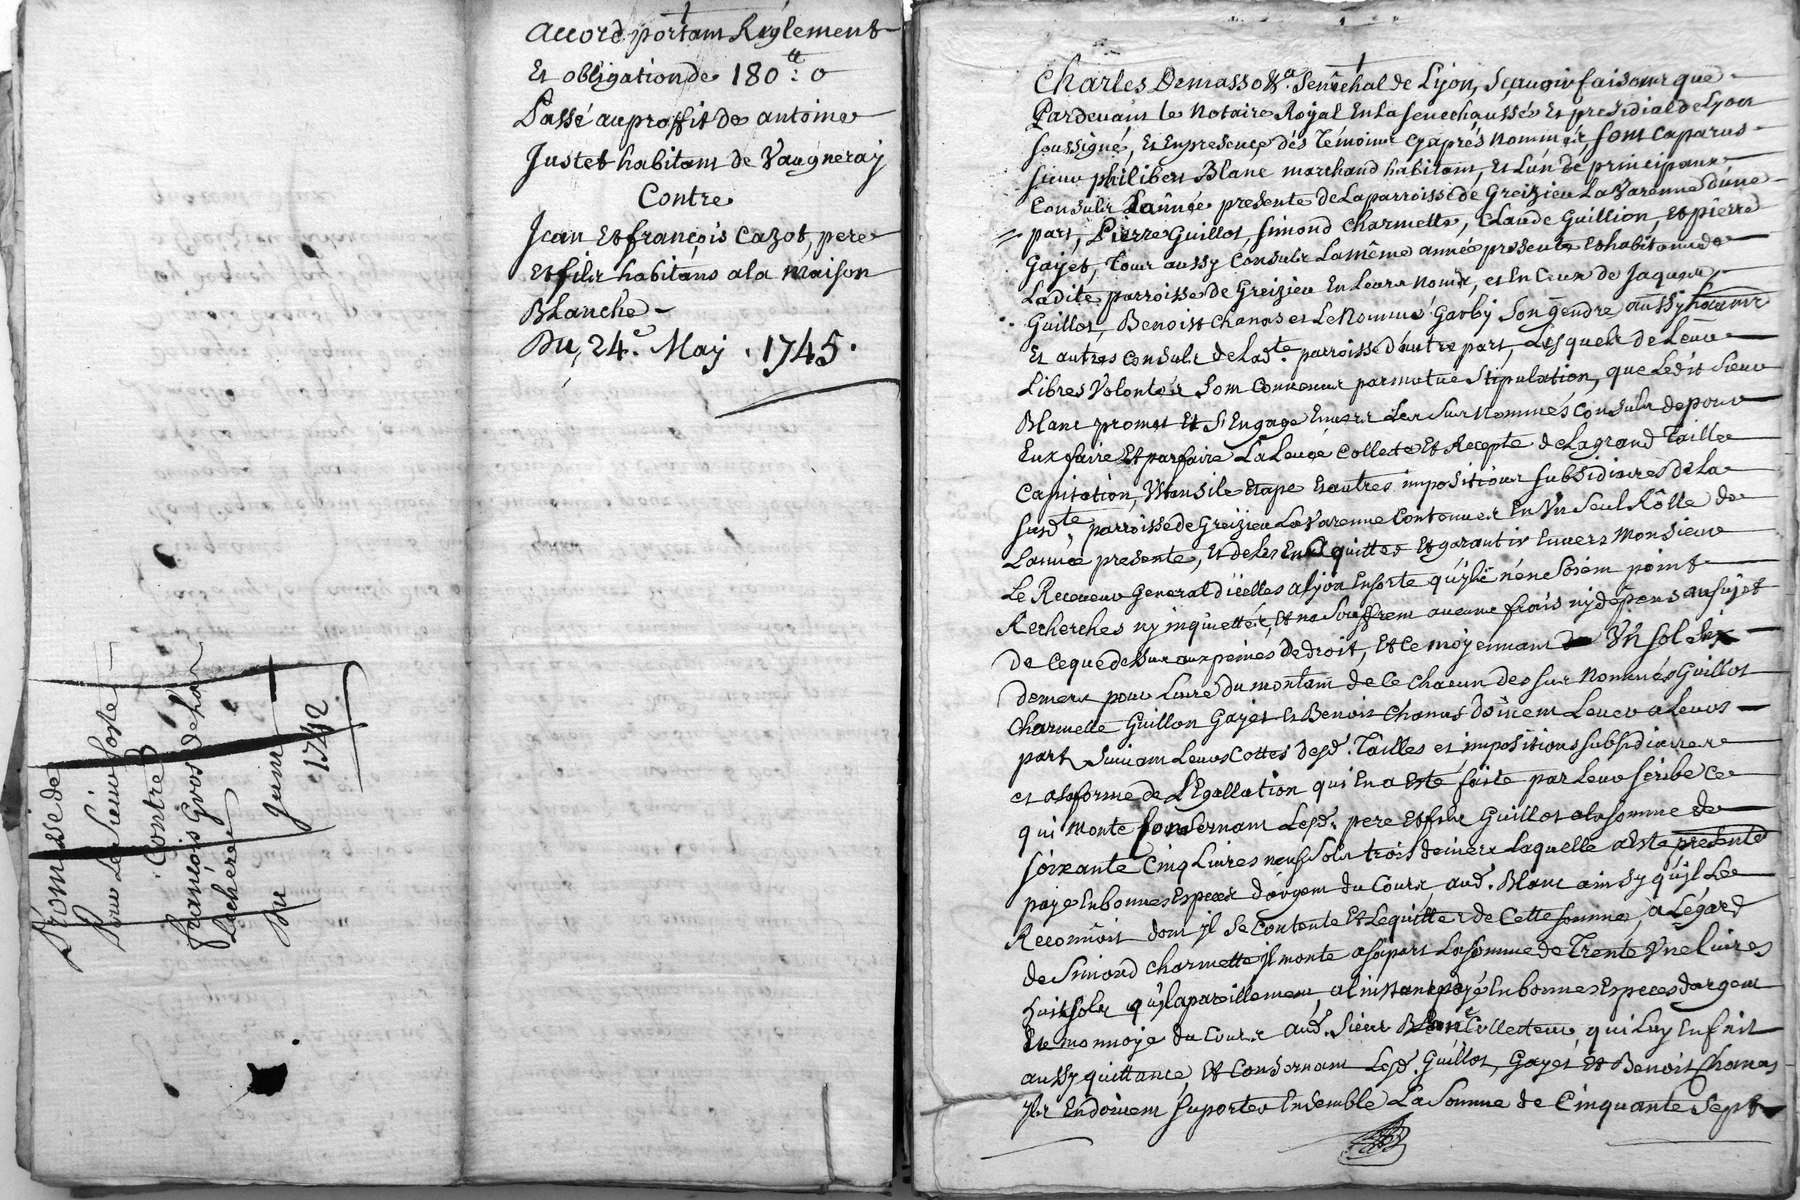 accord portant Réglement
Et obligation de 180 ₶: 0
Passé au proffit de antoine
Justet habitant de Vaugneray
Contre
Jean Et françois Cazot, pere
Et fils habitans a la Maison
Blanche
Du, 24.e May . 1745 .
Promesse de
Pour Les Sieur Coste
Contre
françois Gros de la
Lachere
Du Juin
1742
Charles Demasso &a. Senéchal de Lyon, Scavoir faisons que
Pardevant le Notaire Royal En la senechaussée Et presidial de Lyon
soussigné, Et En presence dés Témoins Cyaprés Nommés, sont Caparus
sieur philibert Blanc marchand habitant, Et L'un de principaux
Consuls Lannée presente de La parroisse de Greizieu La Varenne d'une
part, Pierre Guillot, simond Charmette, Claude Guillion, et pierre
Gayet, Tous aussy Consuls La même année presente Et habitans de
Ladite parroisse de Greizieu En Leurs Noms, et En Ceux de Jaques
Guillot, Benoist Chanas et Le Nommé Garby son gendre aussy
Et autres Consuls de Lad.te parroisse d'autre part, Lesquels de Leurs
Libres Volontés sont Convenus par mutue Stipulation, que Ledit sieur
Blanc promet Et s'Engage Envers Les sus Nommés Consuls de pour
Eux faire Et parfaire La Levée Collecte Et Recepte de La grand Taille
Capitation, Vstansile Etape Et autres impositions subsidiaires de La
susd.te parroisse de Greizieu La Varenne Contenues En Vn seul Rôlle de
Lannée presente, Et de Les En acquitter Et garantir Envers Monsieur
Le Receveur General d'icelles a Lyon En sorte qu'yls n'en soient point
Recherches ny inquiettés, Et ne souffrent aucuns frais ny dépens au sujet
De Ceque dessus aux peines de droit, Et Ce moyennant Vn sol six
deniers pour Livre du montant de Ce Chacun des sus Nommés Guillot
Charmette Guillon Gayet Et Benoist Chanas doivent Lever a Leurs
part suivant Leurs Cottes desd. Tailles et impositions subsidiaires
et a la forme de L'Egallation qui En a Esté faite par Leur scribe Ce
qui monte Consernant Lesd. pere Et fils Guillot a la somme de
soixante Cinq Livres neuf sols trois deniers Laquelle a Este presente
payé En bonnes Especes d'argent du Cours aud. Blanc ainsy qu'yl Le
Reconnoit dont yl se Contente Et Le quitte de Cette somme, a L'égard
de Simond Charmette yl monte a sa part La somme de Trente Vne Livres
huit sols qu'yl a pareillement a l'instant payé En bonnes Especes d'argent
Et monnoye du Cours aud. sieur Blanc Collecteur qui Luy En fait
aussy quittance, Et Consernant Lesd. Guillot, Gayet Et Benoist Chanas
yls En doivent suporter Ensemble La somme de Cinquante sept